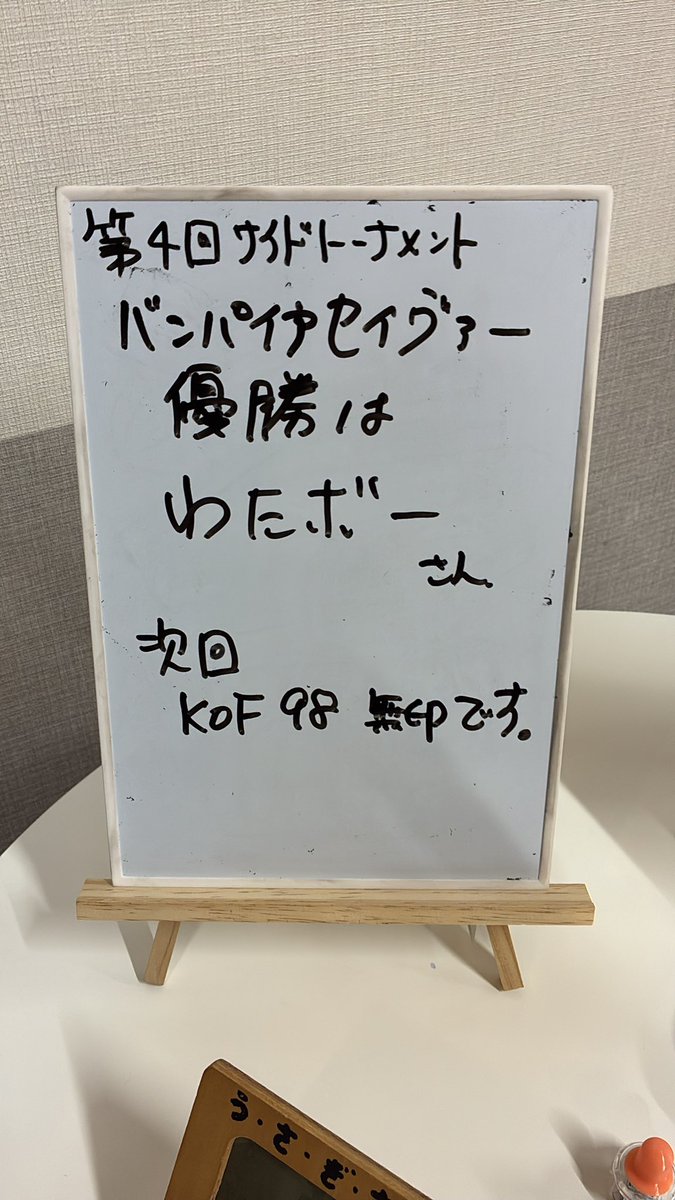 第4回サイドトーナメント
バンパイアセイヴァー
優勝は
わたボー
さん
次回
KOF 98 無印です。
う・さ・ぎ・